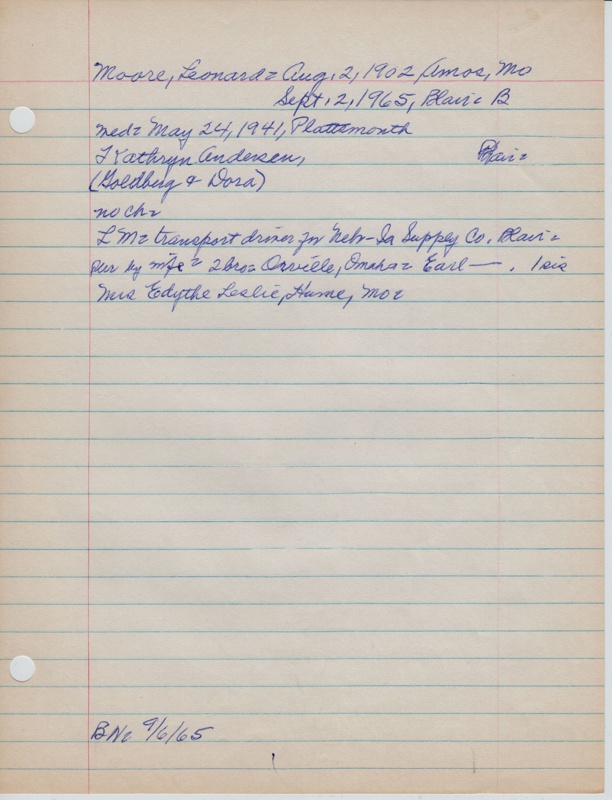 Moore, Leonard= Aug, 2, 1902 Amos, Mo
Sept. 2, 1965, Blair= B
med= May 24, 1941, Plattsmouth
Kathryn Andersen, Blair=
(Goldberg & Dora)
no ch=
L M= transport driver for Nebr-Ia Supply Co. Blair=
sur by wife= 2 bro= Orville, Omaha= Earl —. 1 sis
Mrs Edythe Leslie, Hume, Mo=
BN. 9/6/65